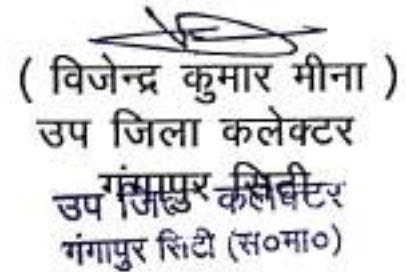 ( विजेन्द्र कुमार मीना )
उप जिला कलेक्टर
गंगापुर सिटी
उप जिला कलेक्टर
गंगापुर सिटी (स०मा०)